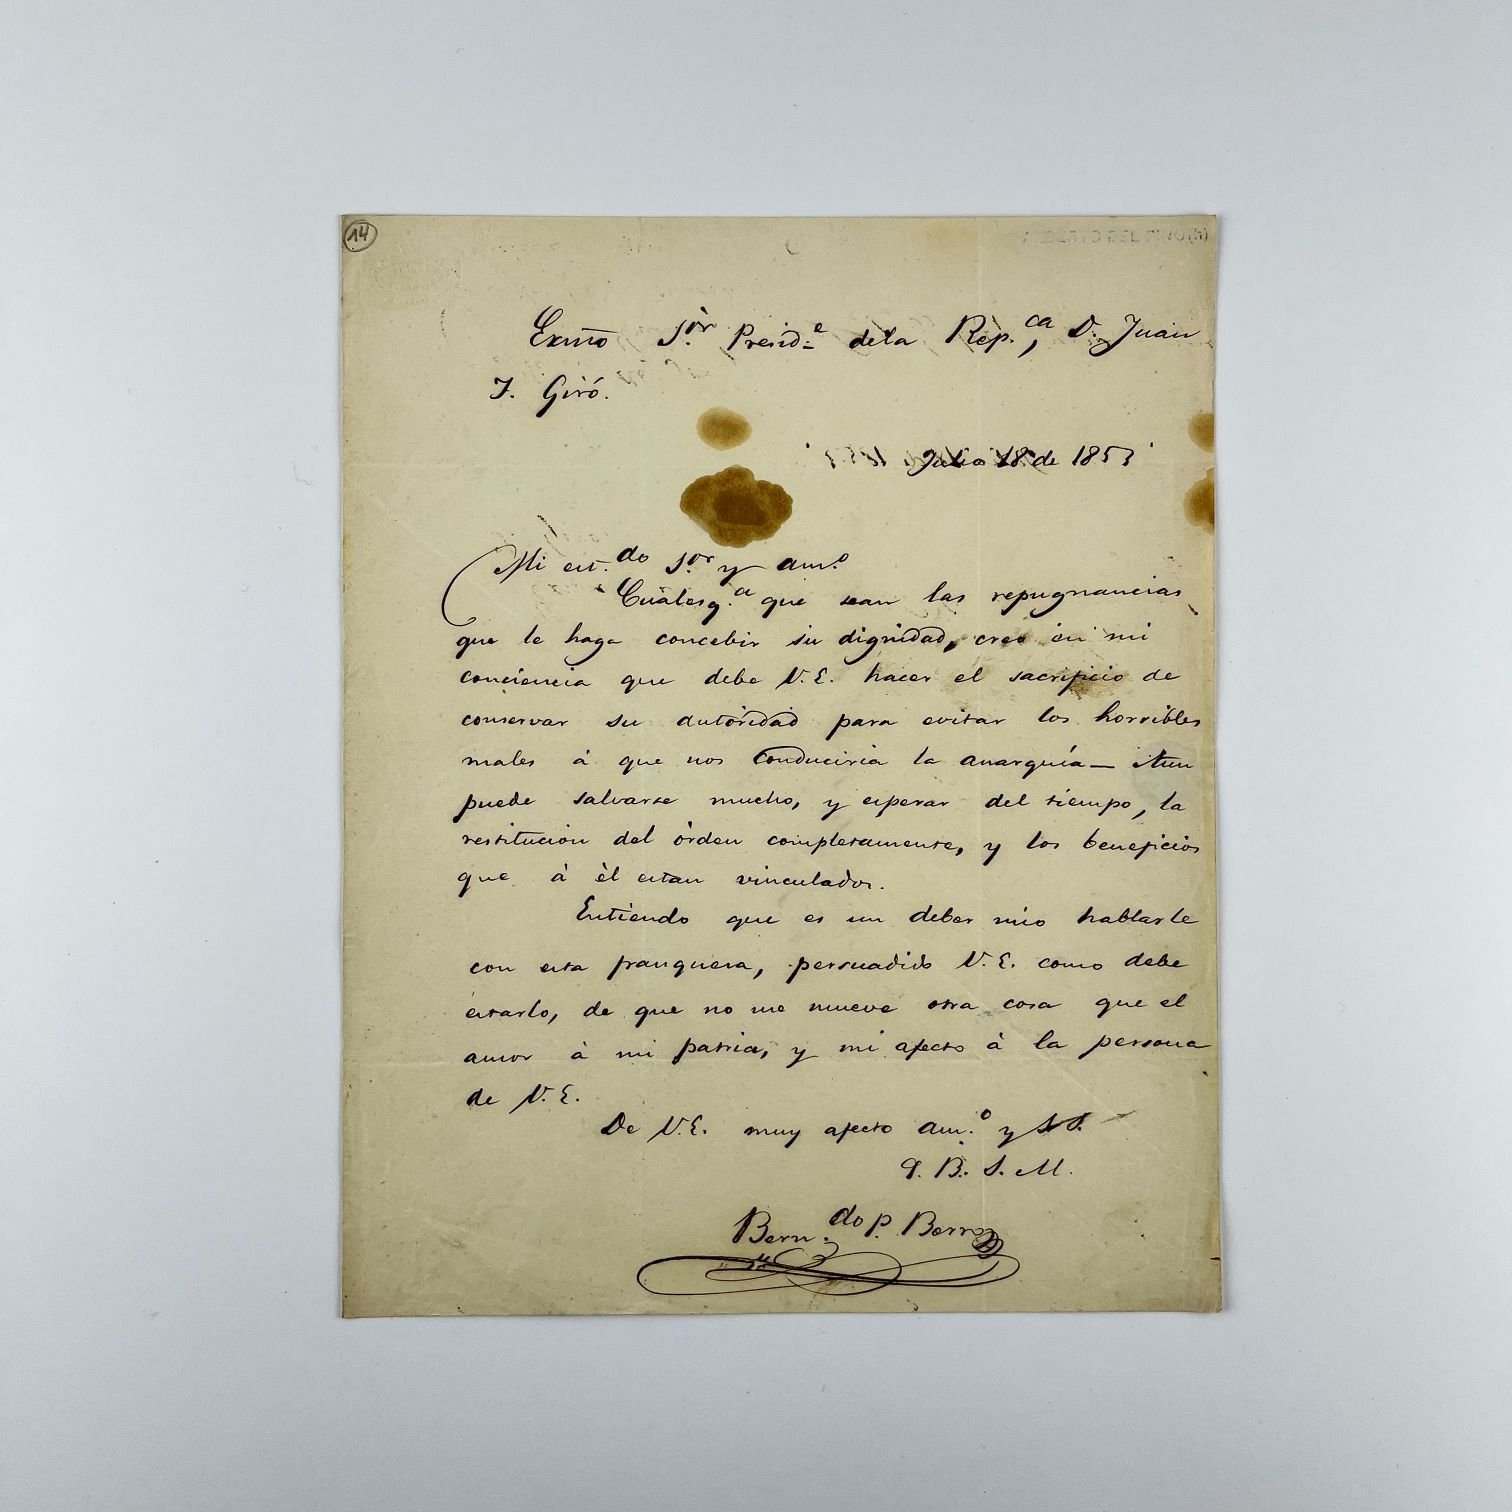 14
Exmo S.or Presid.e de la Rep.ca, D. Juan
F. Giró.
Julio 18 de 1853
Mi est.do S.or y am.o
Cualesq.a que sean las repugnancias
que le haga concebir su dignidad, creo en mi
conciencia que debe V.E. hacer el sacrificio de
conservar su autoridad para evitar los horribles
males á que nos conduciria la anarquía— Aun
puede salvarse mucho, y esperar del tiempo, la
restitucion del órden completamente, y los beneficios
que á él estan vinculados.
Entiendo que es un deber mio hablarle
con esta franqueza, persuadido V.E. como debe
estarlo, de que no me mueve otra cosa que el
amor á mi patria, y mi afecto á la persona
de V.E.
De V.E. muy afecto am.o y S.S.
Q. B. S. M.
Bern.do P. Berro